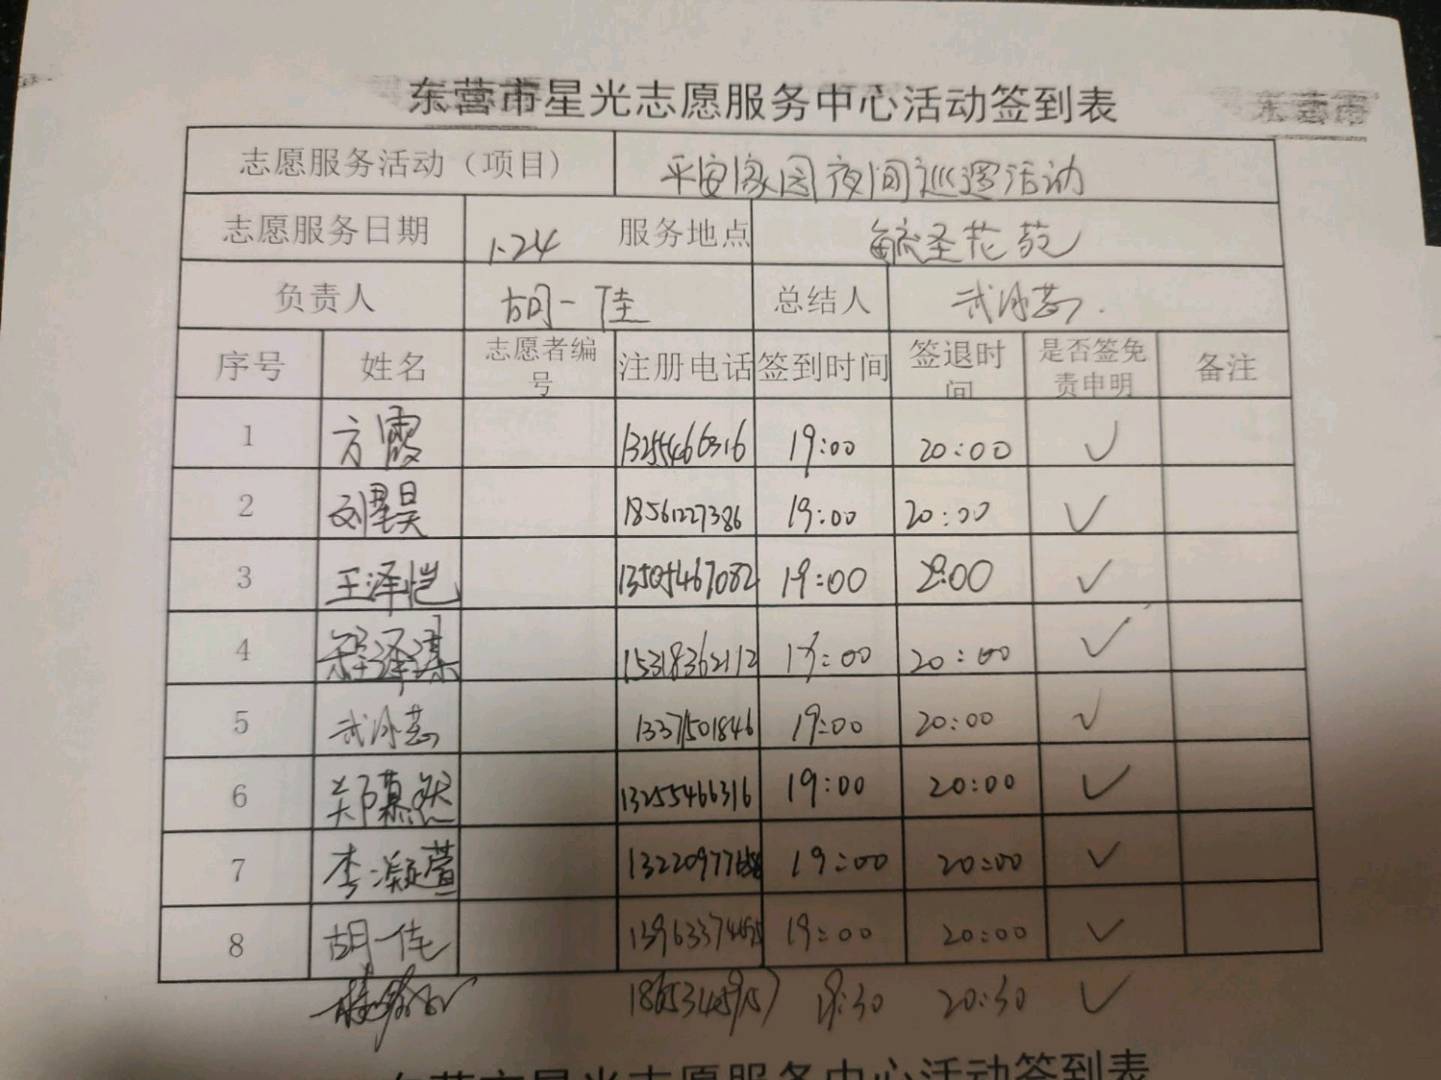 东营市星光志愿服务中心活动签到表
东营市
志愿服务活动（项目） 平安家园夜间巡逻活动
志愿服务日期 1.24 服务地点 毓圣花苑
负责人 胡一佳 总结人
序号 姓名 志愿者编号 注册电话 签到时间 签退时间 是否签免责申明 备注
1 方霞 13255466316 19:00 20:00 ✓
2 18561227386 19:00 20:00 ✓
3 王泽恺 13505467082 19:00 20:00 ✓
4 15318362112 19:00 20:00 ✓
5 13371501846 19:00 20:00 ✓
6 郑慕然 13255466316 19:00 20:00 ✓
7 李凝萱 19:00 20:00 ✓
8 胡一佳 19:00 20:00 ✓
19:30 20:30 ✓
东营市星光志愿服务中心活动签到表